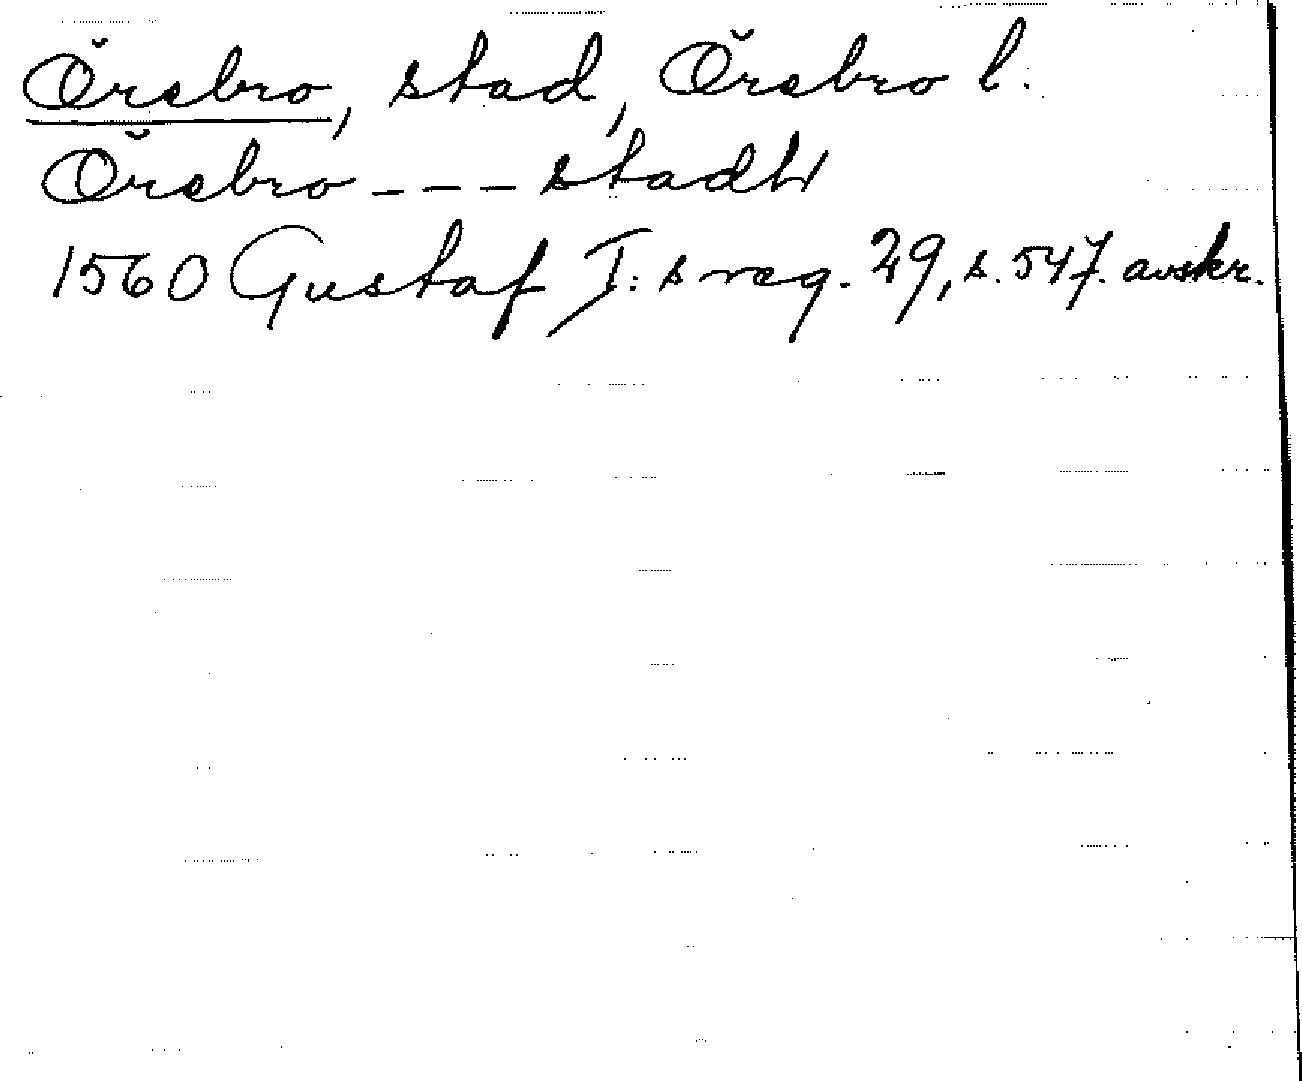 Örebro, stad, Örebro l.
Örebro --- stadh
1560 Gustaf I:s reg. 29, s. 547. avskr.